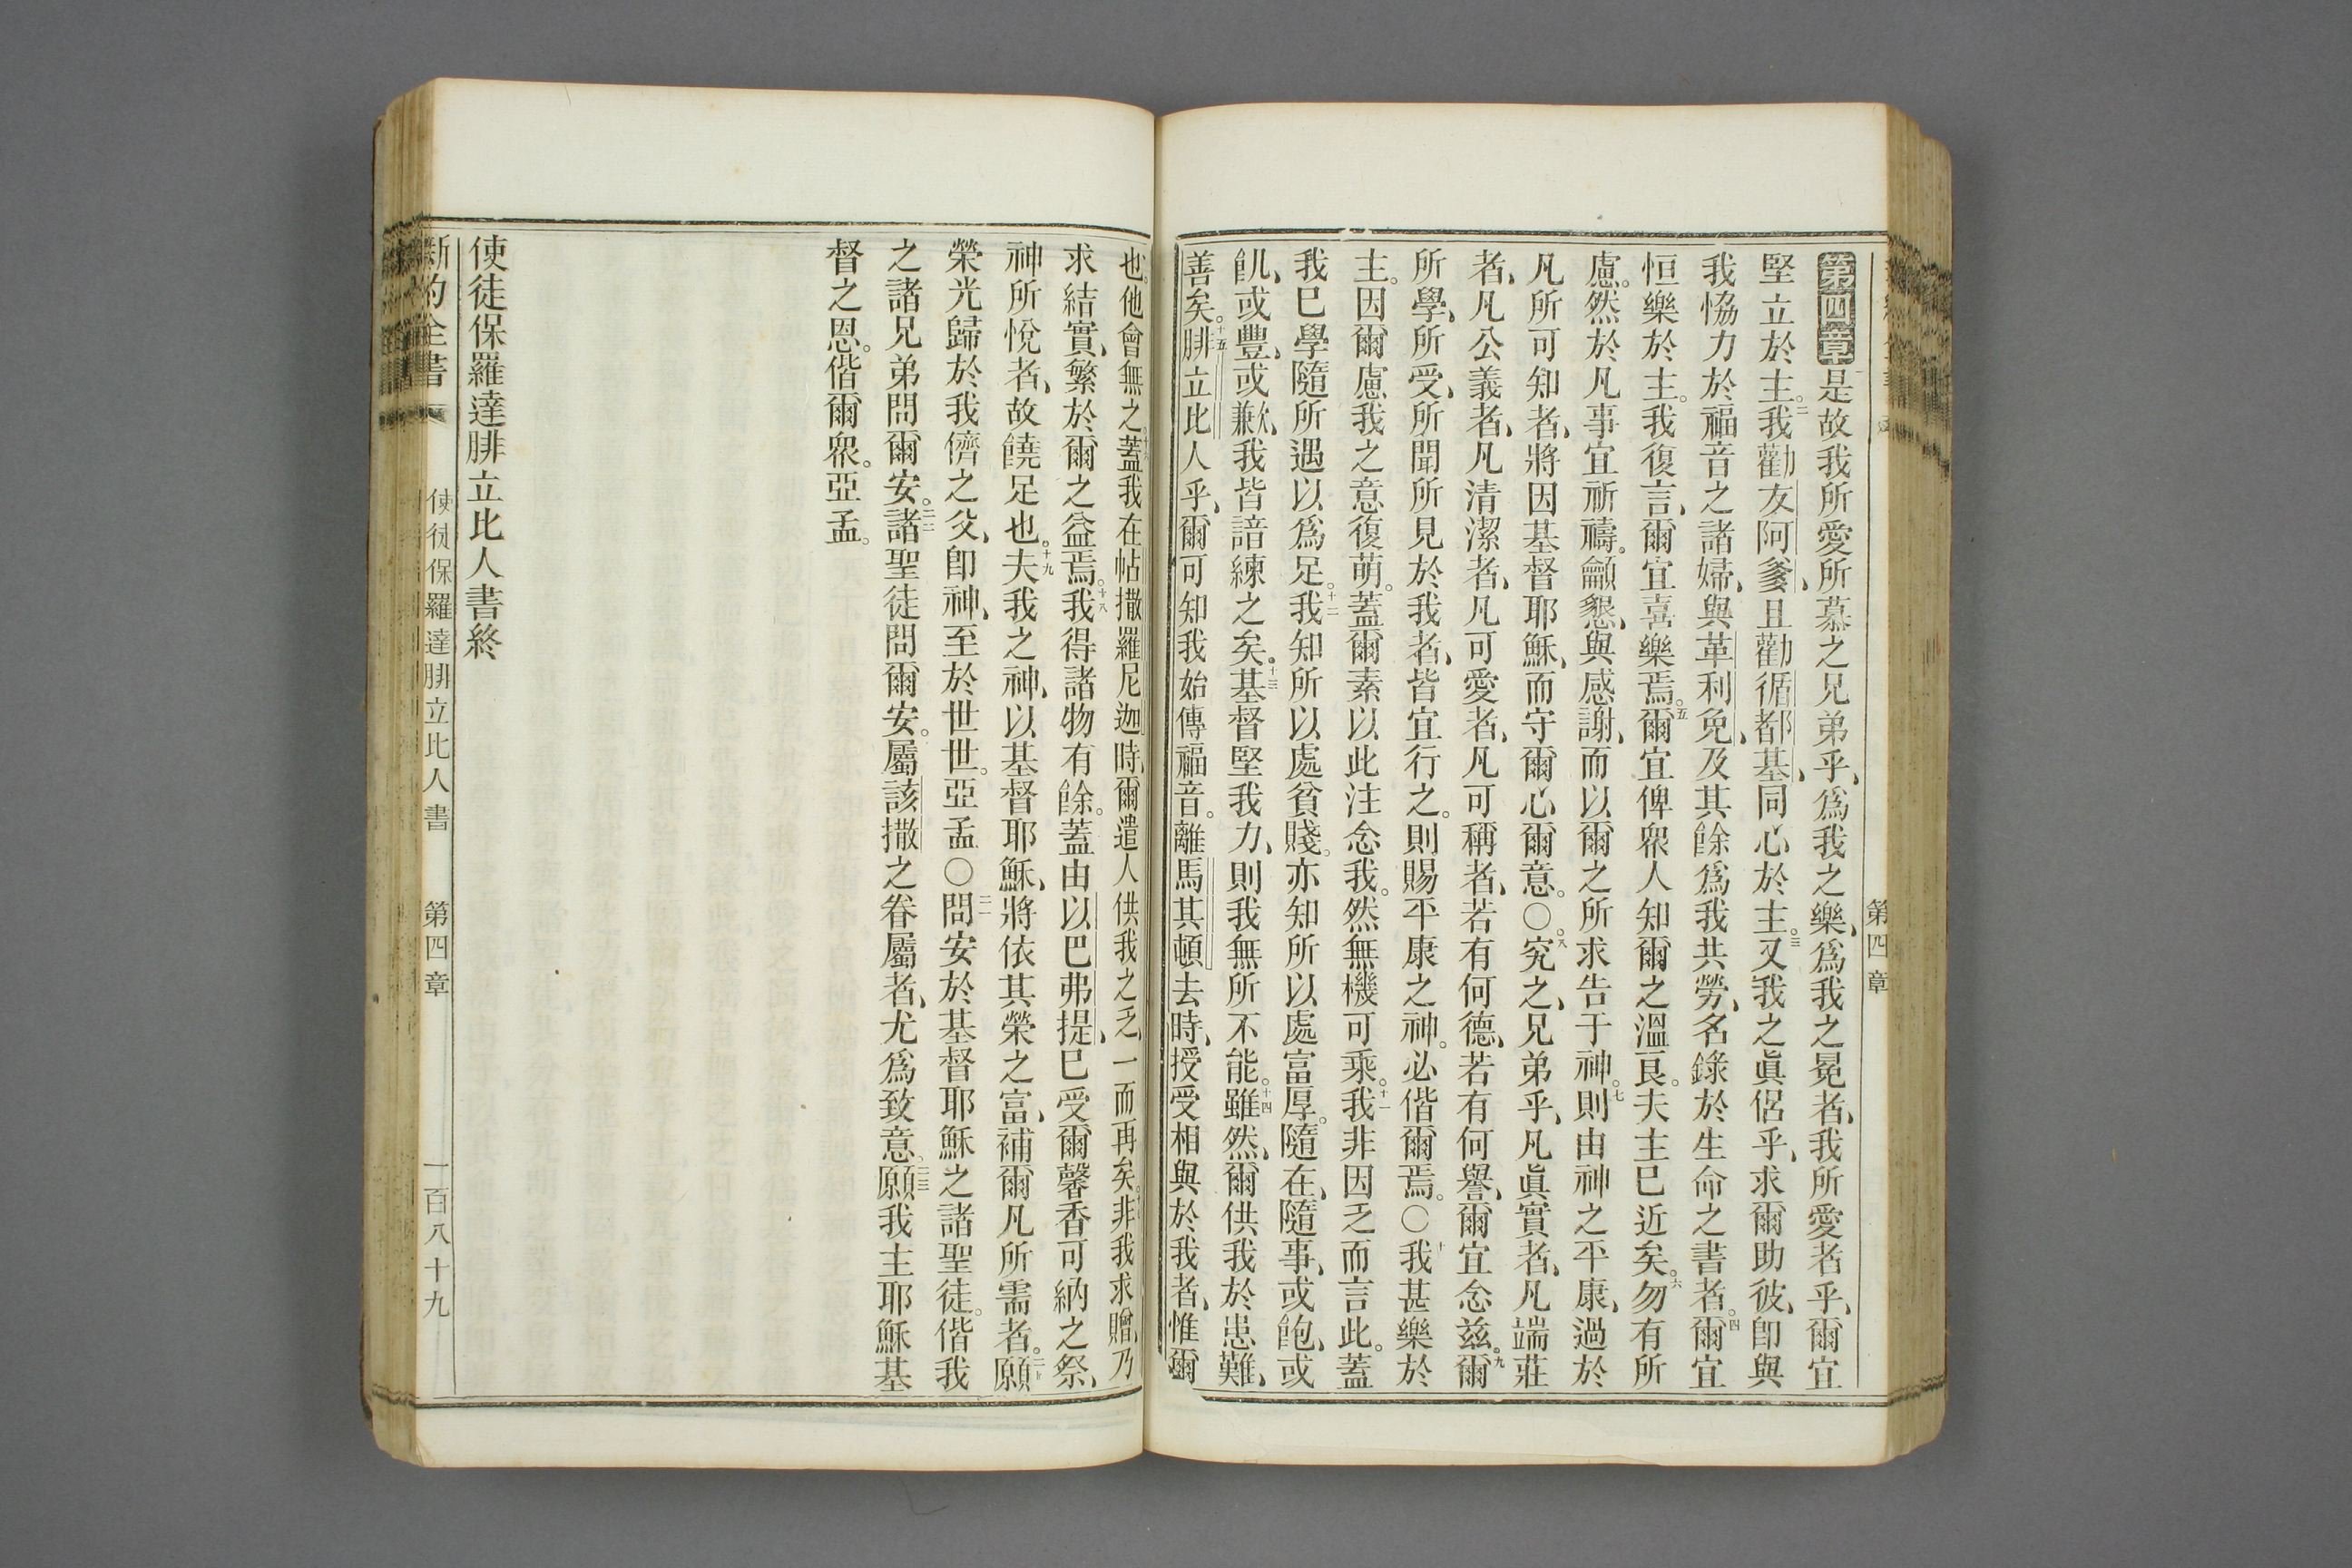 第四章
第四章一是故我所愛所慕之兄弟乎、爲我之樂、爲我之冕者、我所愛者乎、爾宜
堅立於主。二我勸友阿爹、且勸循都基、同心於主。三又我之眞侶乎、求爾助彼、卽與
我恊力於福音之諸婦、與革利免、及其餘爲我共勞、名錄於生命之書者。四爾宜
恒樂於主。我復言、爾宜喜樂焉。五爾宜俾衆人知爾之溫良。夫主巳近矣。六勿有所
慮。然於凡事宜祈禱。龥懇、與感謝、而以爾之所求告于神。七則由神之平康、過於
凡所可知者、將因基督耶穌、而守爾心爾意。〇八究之、兄弟乎、凡眞實者、凡端莊
者、凡公義者、凡清潔者、凡可愛者、凡可稱者、若有何德、若有何譽、爾宜念兹。九爾
所學、所受、所聞所見於我者、皆宜行之。則賜平康之神。必偕爾焉。〇十我甚樂於
主。因爾慮我之意復萌。蓋爾素以此注念我。然無機可乘。十一我非因乏而言此。蓋
我巳學隨所遇以爲足。十二我知所以處貧賤。亦知所以處富厚。隨在、隨事、或飽、或
飢、或豐、或歉、我皆諳練之矣。十三基督堅我力、則我無所不能。十四雖然、爾供我於患難、
善矣。十五腓立比人乎、爾可知我始傳福音。離馬其頓去時、授受相與於我者、惟爾
也。他會無之。十六蓋我在帖撒羅尼迦時、爾遣人供我之乏、一而再矣。十七非我求贈、乃
求結實、繁於爾之益焉。十八我得諸物有餘。蓋由以巴弗提、巳受爾馨香可納之祭、
神所悅者、故饒足也。十九夫我之神、以基督耶穌、將依其榮之富、補爾凡所需者。二十願
榮光歸於我儕之父、卽神、至於世世。亞孟〇二一問安於基督耶穌之諸聖徒。偕我
之諸兄弟問爾安。二二諸聖徒問爾安。屬該撒之眷屬者、尤爲致意。二三願我主耶穌基
督之恩。偕爾衆。亞孟。
使徒保羅達腓立比人書終
新約全書 使徒保羅達腓立比人書 第四章 一百八十九